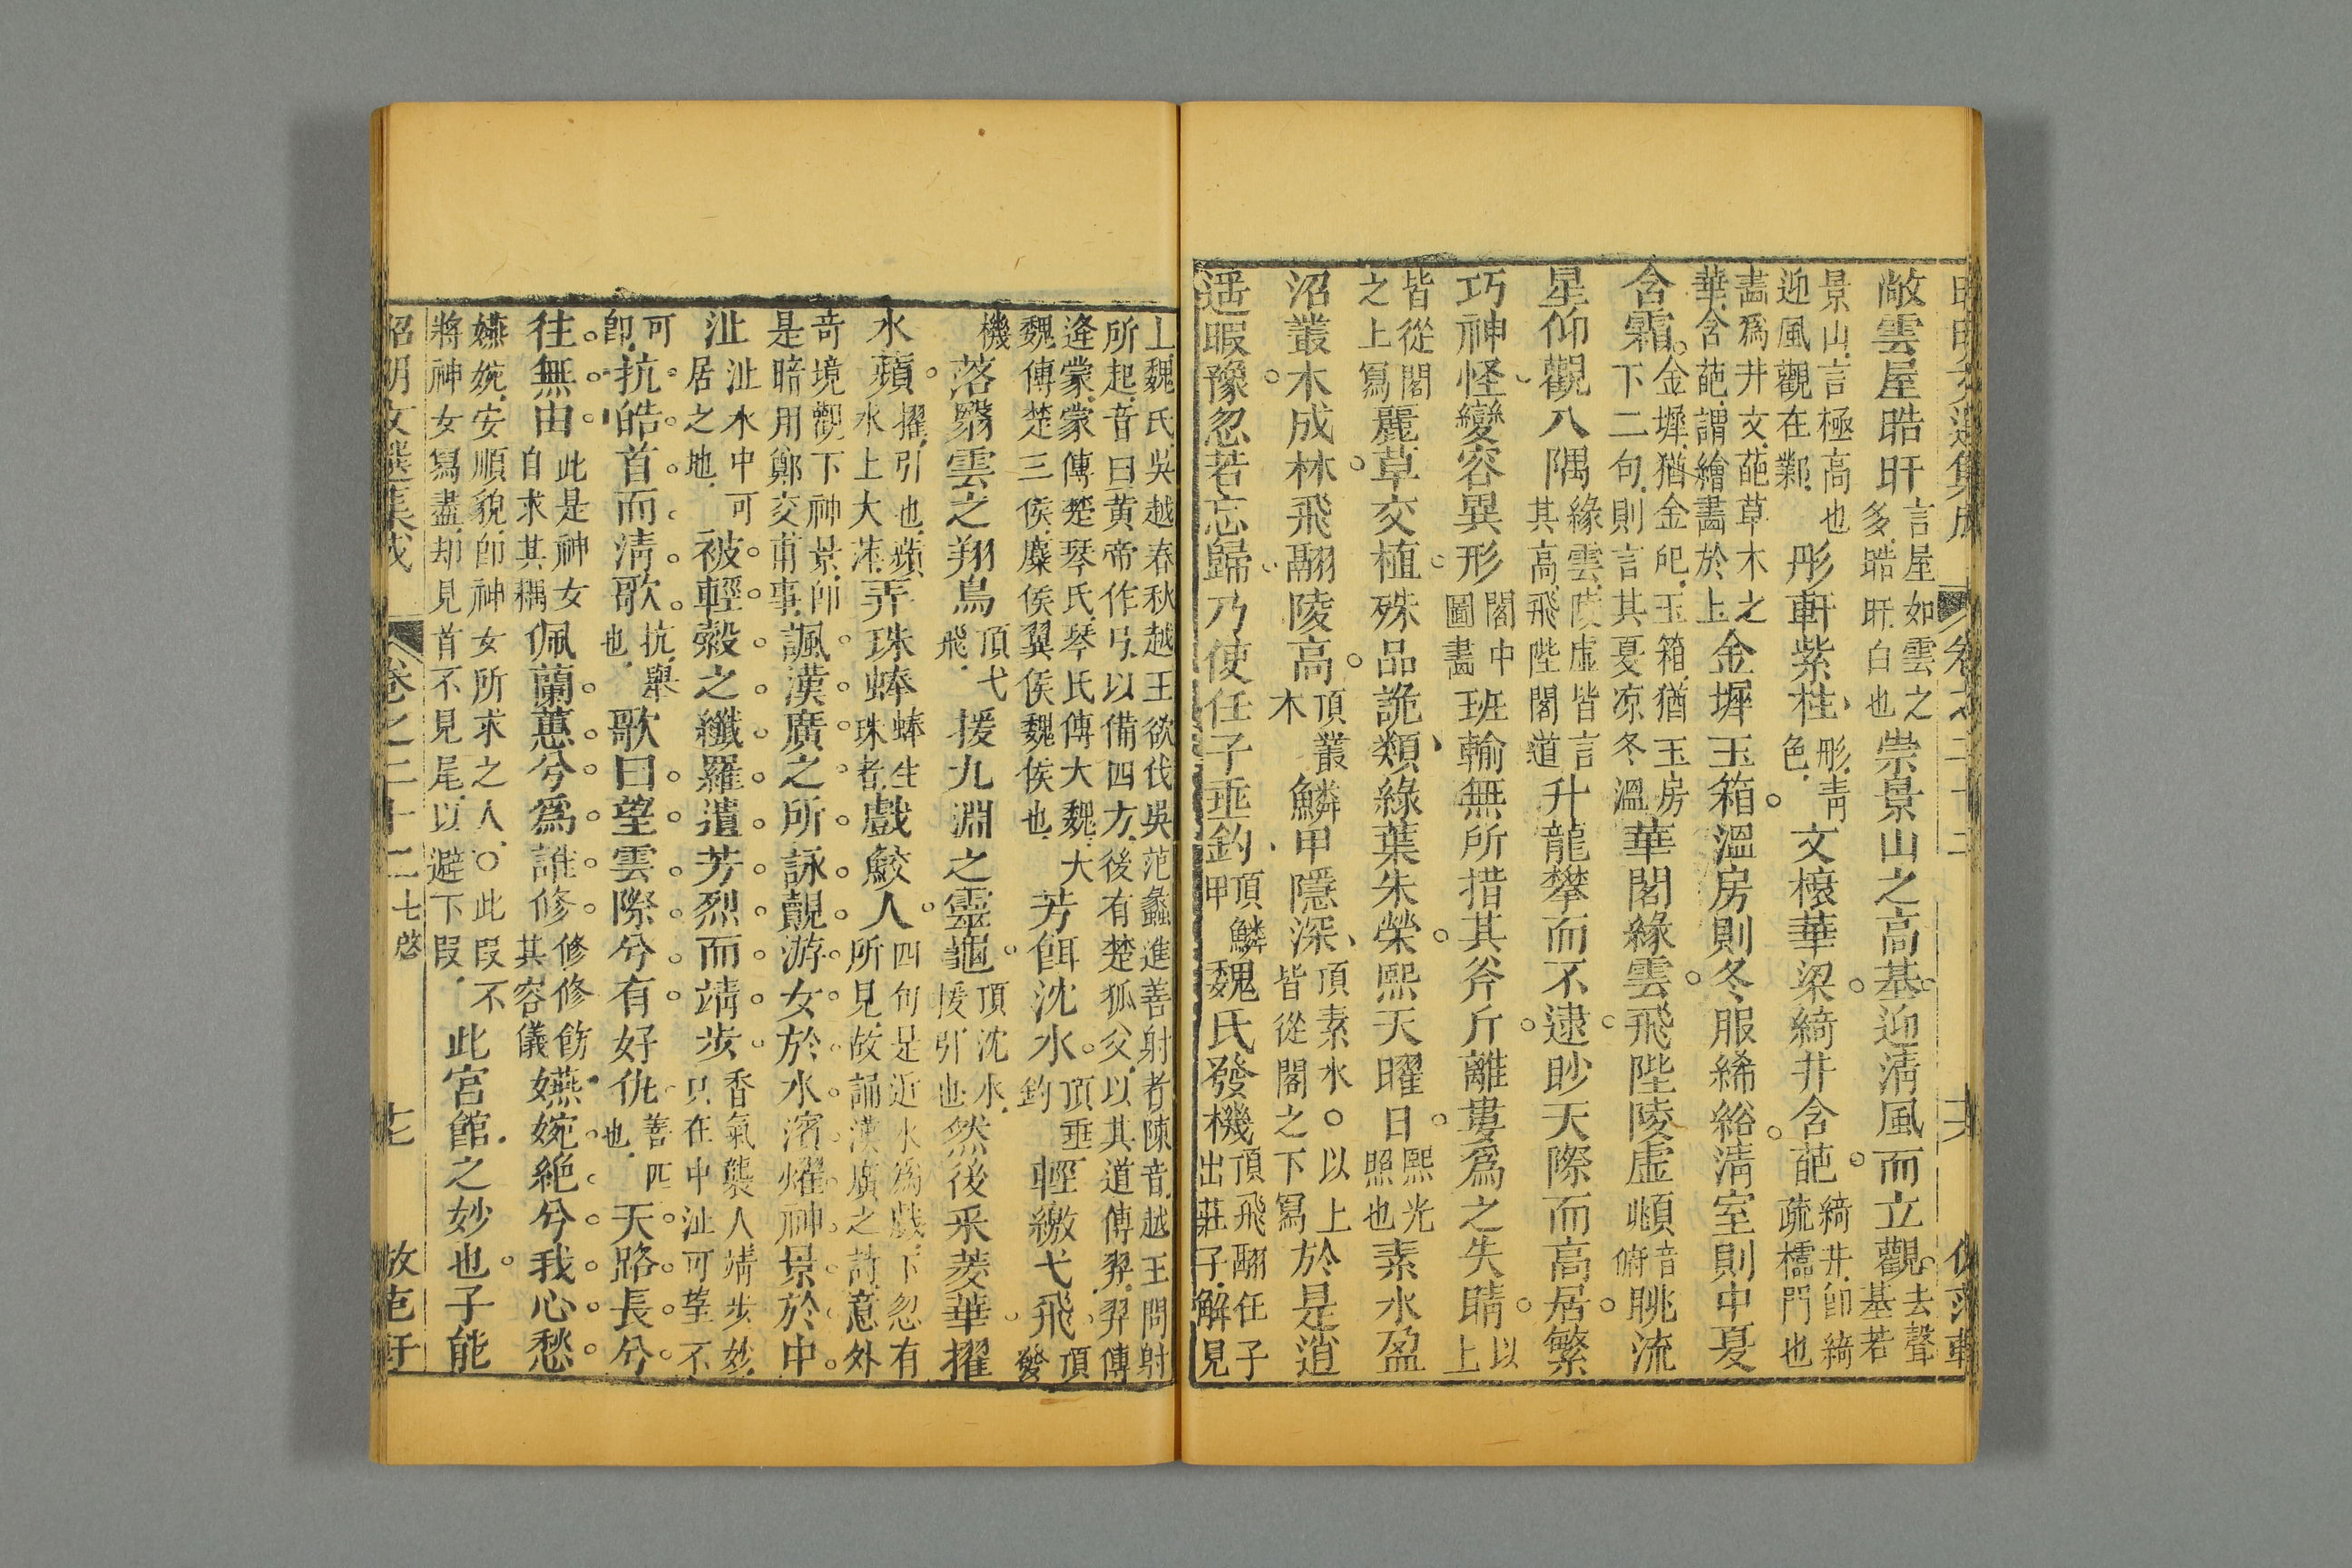 敞雲屋晧旰言屋如雲之多晧旰白也崇景山之高基迎淸風而立觀去聲基若
景山言極高也迎風觀在鄴彤軒紫柱彤靑色文榱華梁綺井含葩綺井卽綺疏櫺門也
畵爲井文葩草木之華含葩謂繪畵於上金墀玉箱溫房則冬服絺綌淸室則中夏
含霜金墀猶金戺玉箱猶玉房下二句則言其夏凉冬溫華閣緣雲飛陛陵虛頫音俯眺流
星仰觀八隅緣雲陵虛皆言其高飛陛閣道升龍攀而不逮眇天際而高居繁
巧神怪變容異形閣中圖畵班輸無所措其斧斤離婁爲之失睛以上
皆從閣之上寫麗草交植殊品詭類綠葉朱榮熙天曜日熙光照也素水盈
沼叢木成林飛翮陵高頂叢木鱗甲隱深頂素水○以上皆從閣之下寫於是逍
遥暇豫忽若忘歸乃使任子垂釣頂鱗甲魏氏發機頂飛翮任子出莊子解見
上魏氏吳越春秋越王欲伐吳范蠡進善射者陳音越王問射
所起音曰黃帝作弓以備四方後有楚狐父以其道傳羿羿傳
逄蒙蒙傳楚琴氏琴氏傳大魏大魏傳楚三侯麋侯翼侯魏侯也芳餌沈水頂垂釣輕繳弋飛頂發
機落翳雲之翔鳥頂弋飛援九淵之靈龜頂沈水援引也然後采菱華擢
水蘋擢引也蘋水上大萍弄珠蜯蜯生珠者戲鮫人四句是近水爲戲下忽有所見故誦漢廣之詩意外
竒境觀下神景卽是暗用鄭交甫事諷漢廣之所詠覿游女於水濱燿神景於中
沚沚水中可居之地被輕縠之纖羅遺芳烈而靖步香氣襲人靖步妙只在中沚可望不
可卽抗皓首而淸歌抗舉也歌曰望雲際兮有好仇善匹也天路長兮
往無由此是神女自求其稱佩蘭蕙兮爲誰修修修飭其容儀嬿婉絶兮我心愁
嬿婉安順貌卽神女所求之人○此叚不將神女寫盡却見首不見尾以避下叚此宮館之妙也子能
昭明文選集成　卷之二十二　七啓